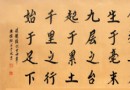 生于毫末
九层之台
起于累土
千里之行
始于足下